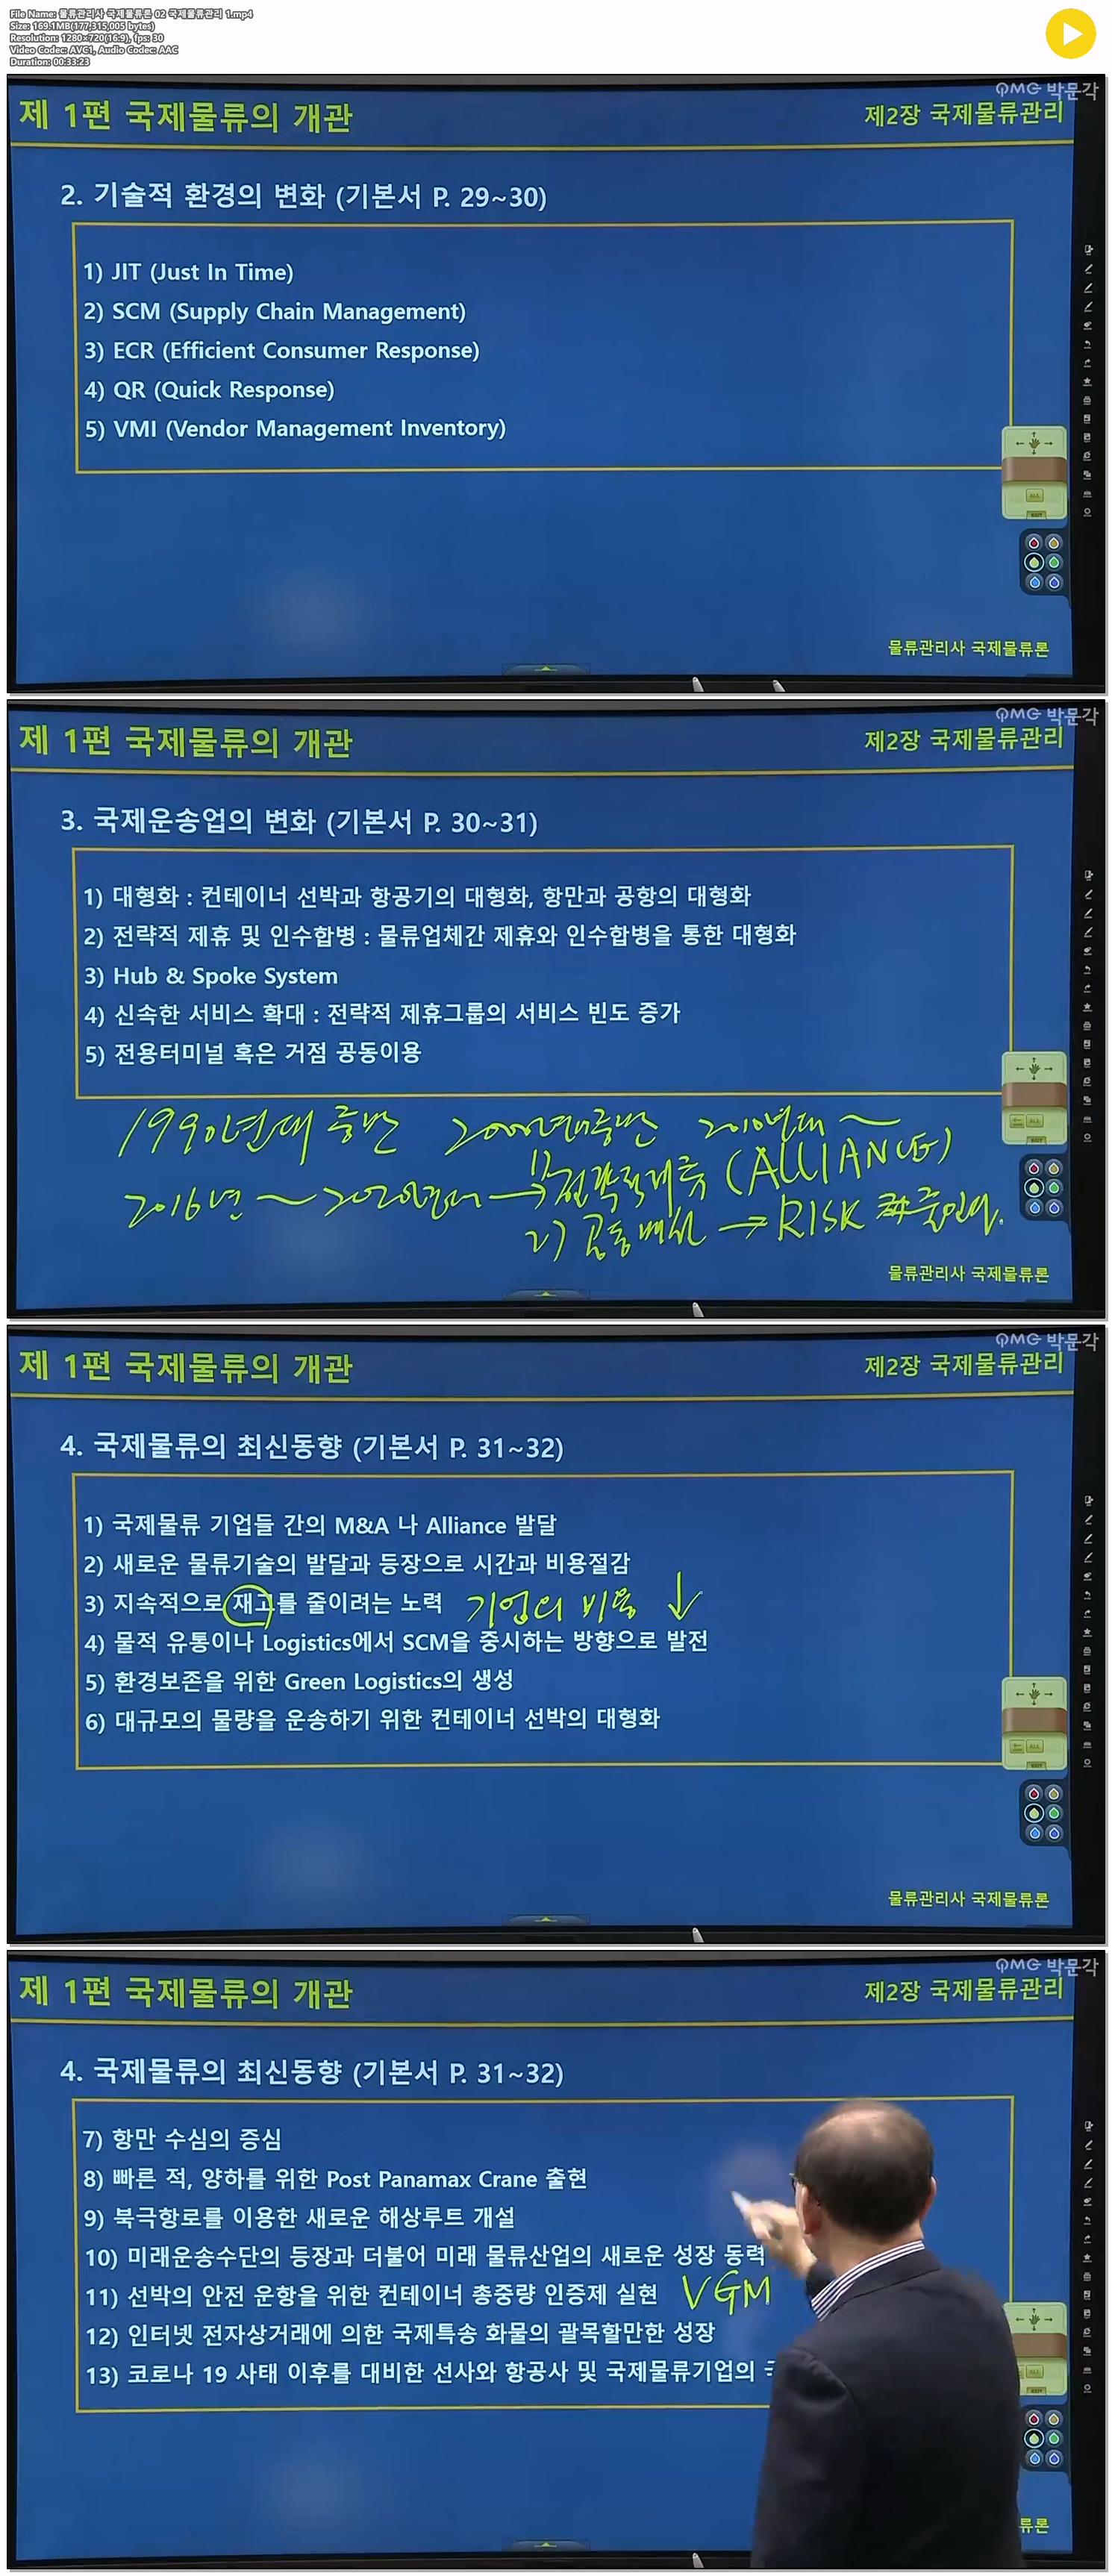 File Name: 물류관리사 국제물류론 02 국제물류관리 1.mp4
Size: 169.1MB(177,315,005 bytes)
Resolution: 1280x720(16:9), fps: 30
Video Codec: AVC1, Audio Codec: AAC
Duration: 00:33:23
PMG 박문각
제 1편 국제물류의 개관
제2장 국제물류관리
2. 기술적 환경의 변화 (기본서 P. 29~30)
1) JIT (Just In Time)
2) SCM (Supply Chain Management)
3) ECR (Efficient Consumer Response)
4) QR (Quick Response)
5) VMI (Vendor Management Inventory)
물류관리사 국제물류론
PMG 박문각
제 1편 국제물류의 개관
제2장 국제물류관리
3. 국제운송업의 변화 (기본서 P. 30~31)
1) 대형화 : 컨테이너 선박과 항공기의 대형화, 항만과 공항의 대형화
2) 전략적 제휴 및 인수합병 : 물류업체간 제휴와 인수합병을 통한 대형화
3) Hub & Spoke System
4) 신속한 서비스 확대 : 전략적 제휴그룹의 서비스 빈도 증가
5) 전용터미널 혹은 거점 공동이용
1990년대 중반 2000년대중반 2010년대 ~
2016년 ~ 2020년대 → 1) 전략적제휴 (ALLIANCE)
2) 공동배선 → RISK 줄인다.
물류관리사 국제물류론
PMG 박문각
제 1편 국제물류의 개관
제2장 국제물류관리
4. 국제물류의 최신동향 (기본서 P. 31~32)
1) 국제물류 기업들 간의 M&A 나 Alliance 발달
2) 새로운 물류기술의 발달과 등장으로 시간과 비용절감
3) 지속적으로 재고를 줄이려는 노력 기업의 비용 ↓
4) 물적 유통이나 Logistics에서 SCM을 중시하는 방향으로 발전
5) 환경보존을 위한 Green Logistics의 생성
6) 대규모의 물량을 운송하기 위한 컨테이너 선박의 대형화
물류관리사 국제물류론
PMG 박문각
제 1편 국제물류의 개관
제2장 국제물류관리
4. 국제물류의 최신동향 (기본서 P. 31~32)
7) 항만 수심의 증심
8) 빠른 적, 양하를 위한 Post Panamax Crane 출현
9) 북극항로를 이용한 새로운 해상루트 개설
10) 미래운송수단의 등장과 더불어 미래 물류산업의 새로운 성장 동력
11) 선박의 안전 운항을 위한 컨테이너 총중량 인증제 실현 VGM
12) 인터넷 전자상거래에 의한 국제특송 화물의 괄목할만한 성장
13) 코로나 19 사태 이후를 대비한 선사와 항공사 및 국제물류기업의
류론